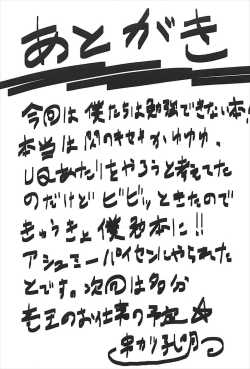 あとがき
今回は僕たちは勉強できない本!
本当は閃のキセキかゆゆゆ、
りQあたりをやろうと考えてた
のだけどビビッときたので
きゅうきょ僕勉本に!!
アシュミーパイセンにやられた
とです。次回は多分
毛王のお仕事の予定☆
串カツ孔明